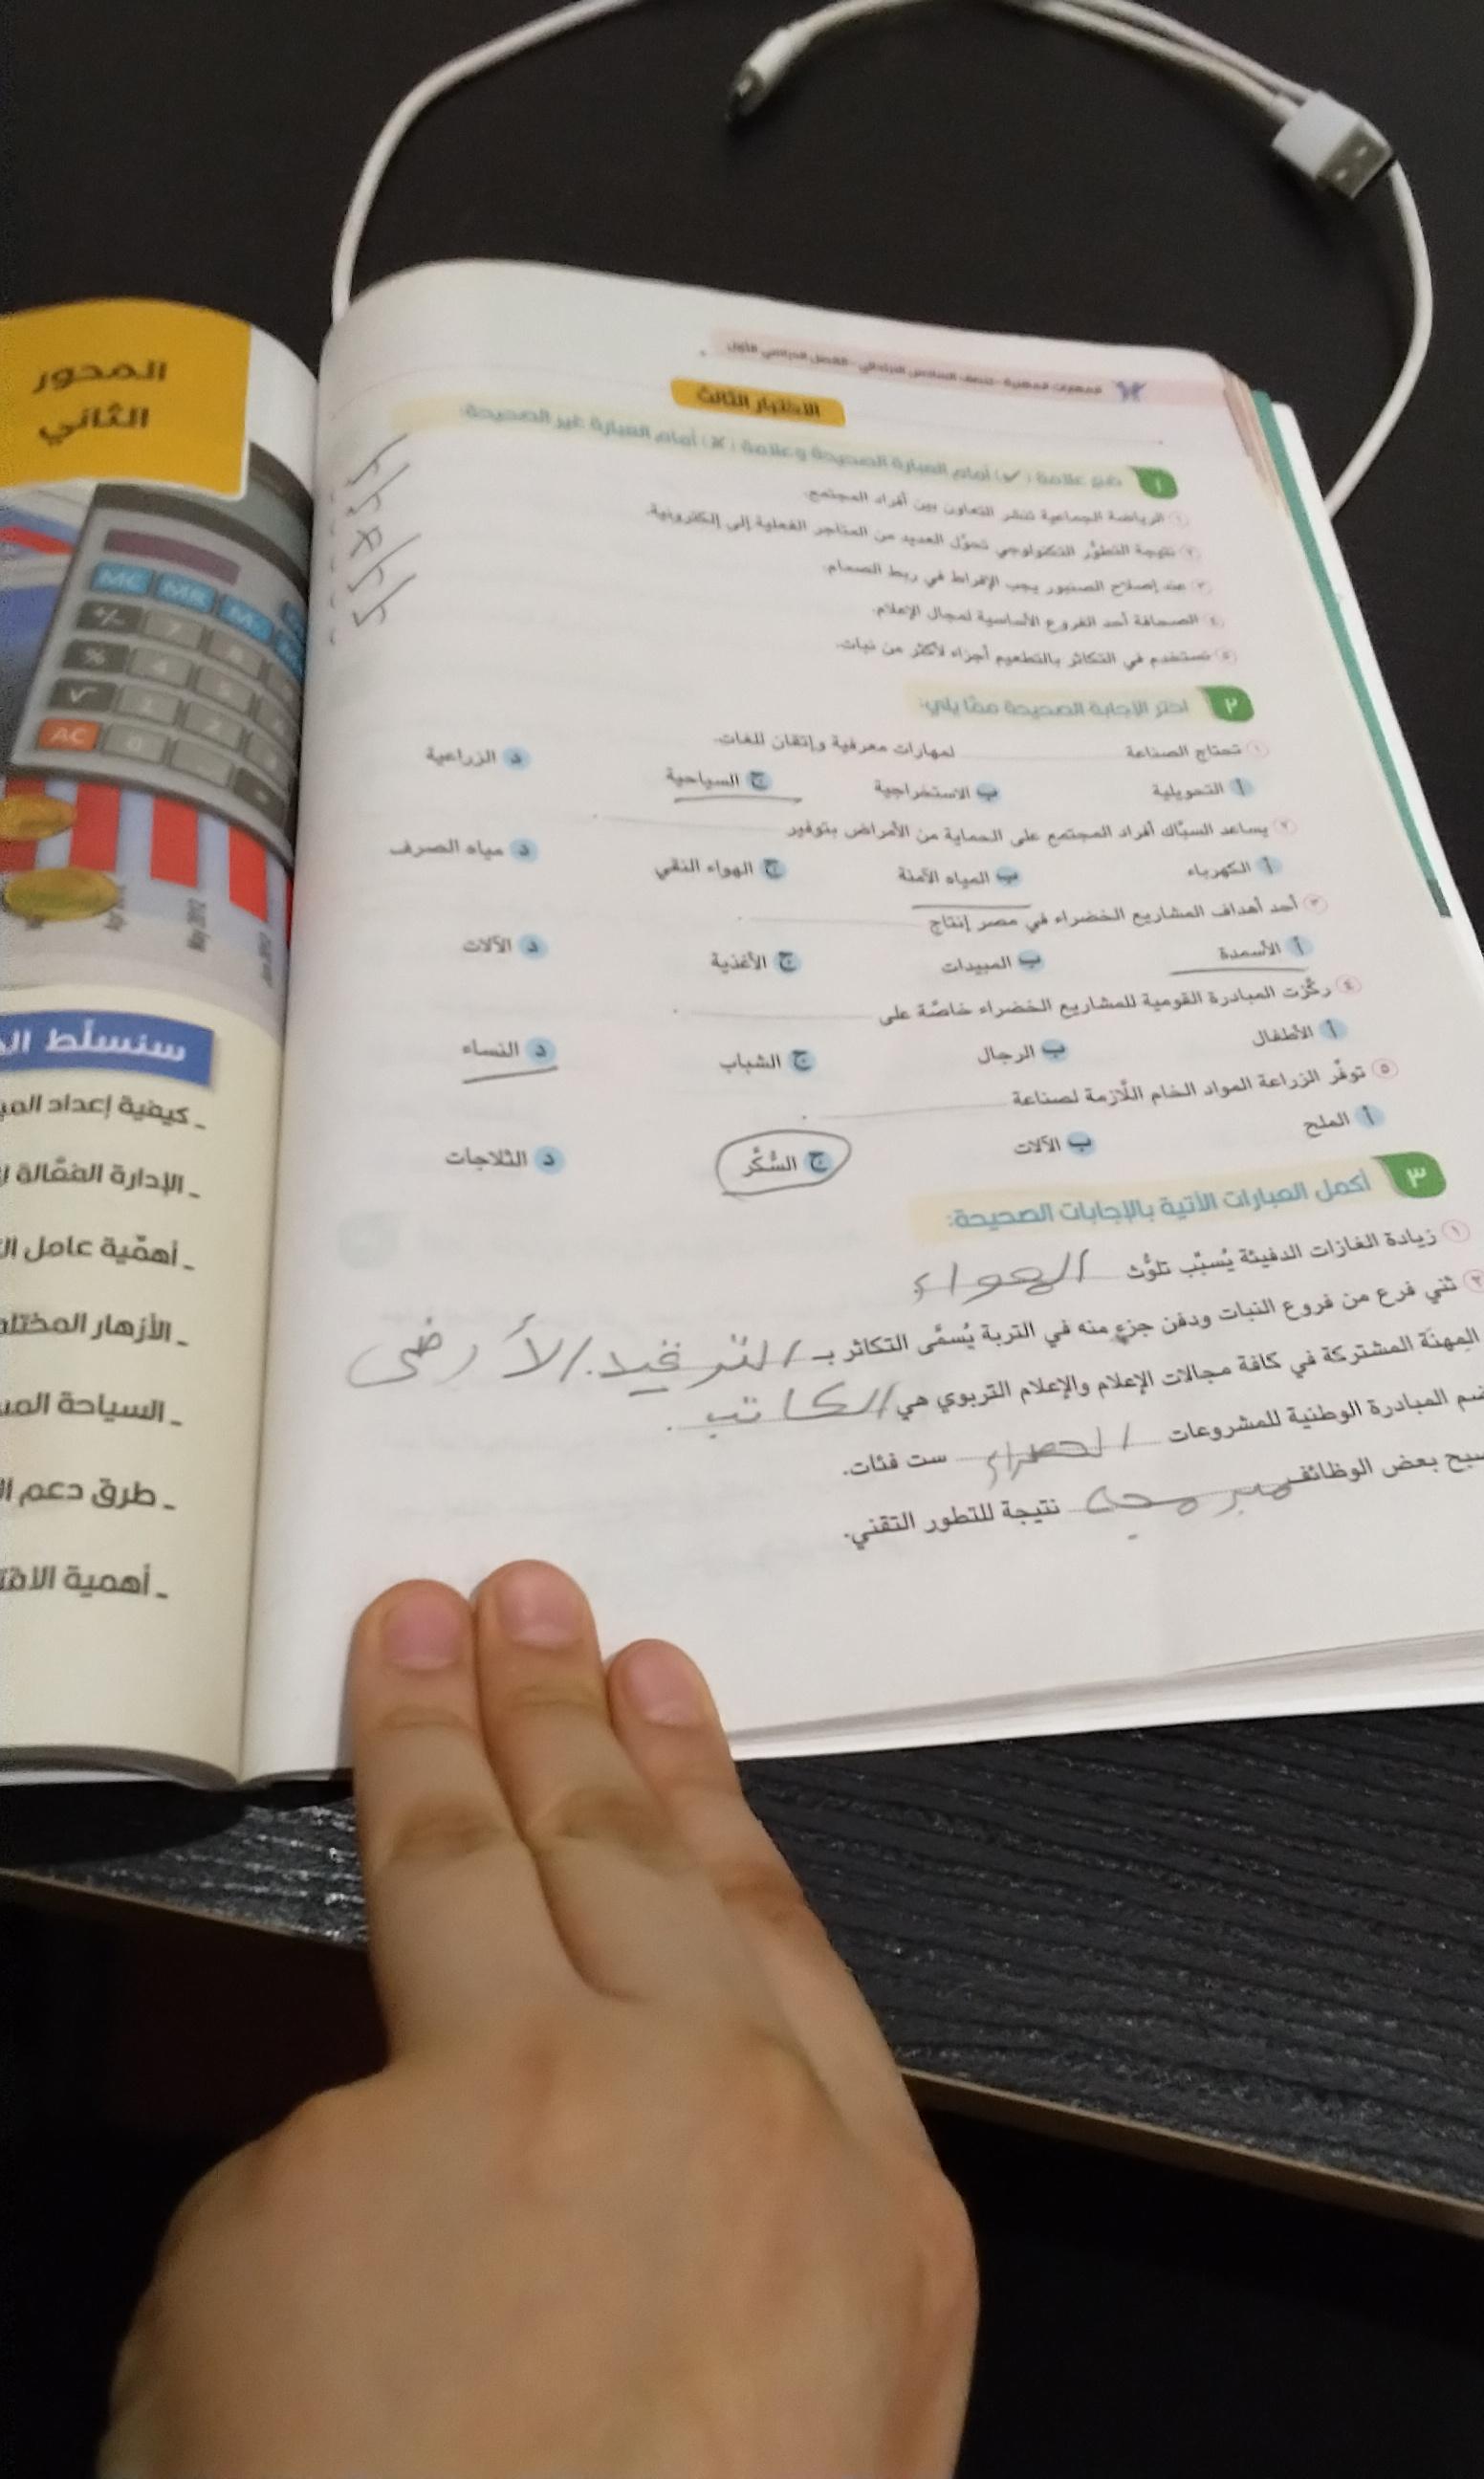 المهارات المهنية - للصف السادس الابتدائي - الفصل الدراسي الأول
الاختبار الثالث
١ ضع علامة (✓) أمام العبارة الصحيحة وعلامة (✗) أمام العبارة غير الصحيحة:
١ الرياضة الجماعية تنشر التعاون بين أفراد المجتمع. ( ✓
٢ نتيجة التطوُّر التكنولوجي تحوَّل العديد من المتاجر الفعلية إلى إلكترونية. ( ✓
٣ عند إصلاح الصنبور يجب الإفراط في ربط الصمام. ( ✗
٤ الصحافة أحد الفروع الأساسية لمجال الإعلام. ( ✓
٥ نستخدم في التكاثر بالتطعيم أجزاء لأكثر من نبات. ( ✓
٢ اختر الإجابة الصحيحة ممَّا يلي:
١ تحتاج الصناعة لمهارات معرفية وإتقان للغات.
أ التحويلية ب الاستخراجية ج السياحية د الزراعية
٢ يساعد السبَّاك أفراد المجتمع على الحماية من الأمراض بتوفير .
أ الكهرباء ب المياه الآمنة ج الهواء النقي د مياه الصرف
٣ أحد أهداف المشاريع الخضراء في مصر إنتاج .
أ الأسمدة ب المبيدات ج الأغذية د الآلات
٤ ركَّزت المبادرة القومية للمشاريع الخضراء خاصَّة على .
أ الأطفال ب الرجال ج الشباب د النساء
٥ توفِّر الزراعة المواد الخام اللَّازمة لصناعة .
أ الملح ب الآلات ج السُّكَّر د الثلاجات
٣ أكمل العبارات الآتية بالإجابات الصحيحة:
١ زيادة الغازات الدفيئة يُسبِّب تلوُّث الهواء
٢ ثني فرع من فروع النبات ودفن جزءٍ منه في التربة يُسمَّى التكاثر بـ الترقيد الأرضى
المِهنَة المشتركة في كافة مجالات الإعلام والإعلام التربوي هي الكاتب .
المبادرة الوطنية للمشروعات الخضراء ست فئات.
بعض الوظائف مبرمجة نتيجة للتطور التقني.
المحور
الثاني
MC MR M-
+/- 7 8
% 4 5
√ 1 2
AC 0
May 2012
سنسلِّط
_ كيفية إعداد
_ الإدارة الفعَّالة
_ أهمِّية عامل
_ الأزهار
_ السياحة
_ طرق دعم
_ أهمية